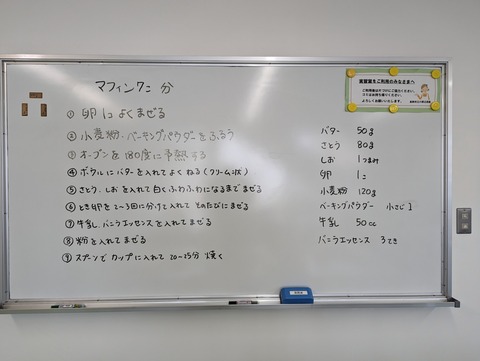 マフィン7こ分
① 卵1コ よくまぜる
② 小麦粉、ベーキングパウダーをふるう
③ オーブンを180度に予熱する
④ ボウルにバターを入れてよくねる(クリーム状)
⑤ さとう、しおを入れて白くふわふわになるまでまぜる
⑥ とき卵を2〜3回に分けて入れて そのたびにまぜる
⑦ 牛乳、バニラエッセンスを入れてまぜる
⑧ 粉を入れてまぜる
⑨ スプーンで カップに入れて 20〜25分 焼く
バター 50g
さとう 80g
しお 1つまみ
卵 1コ
小麦粉 120g
ベーキングパウダー 小さじ1
牛乳 50cc
バニラエッセンス 3てき
実習室をご利用のみなさまへ
よろしくお願いします。